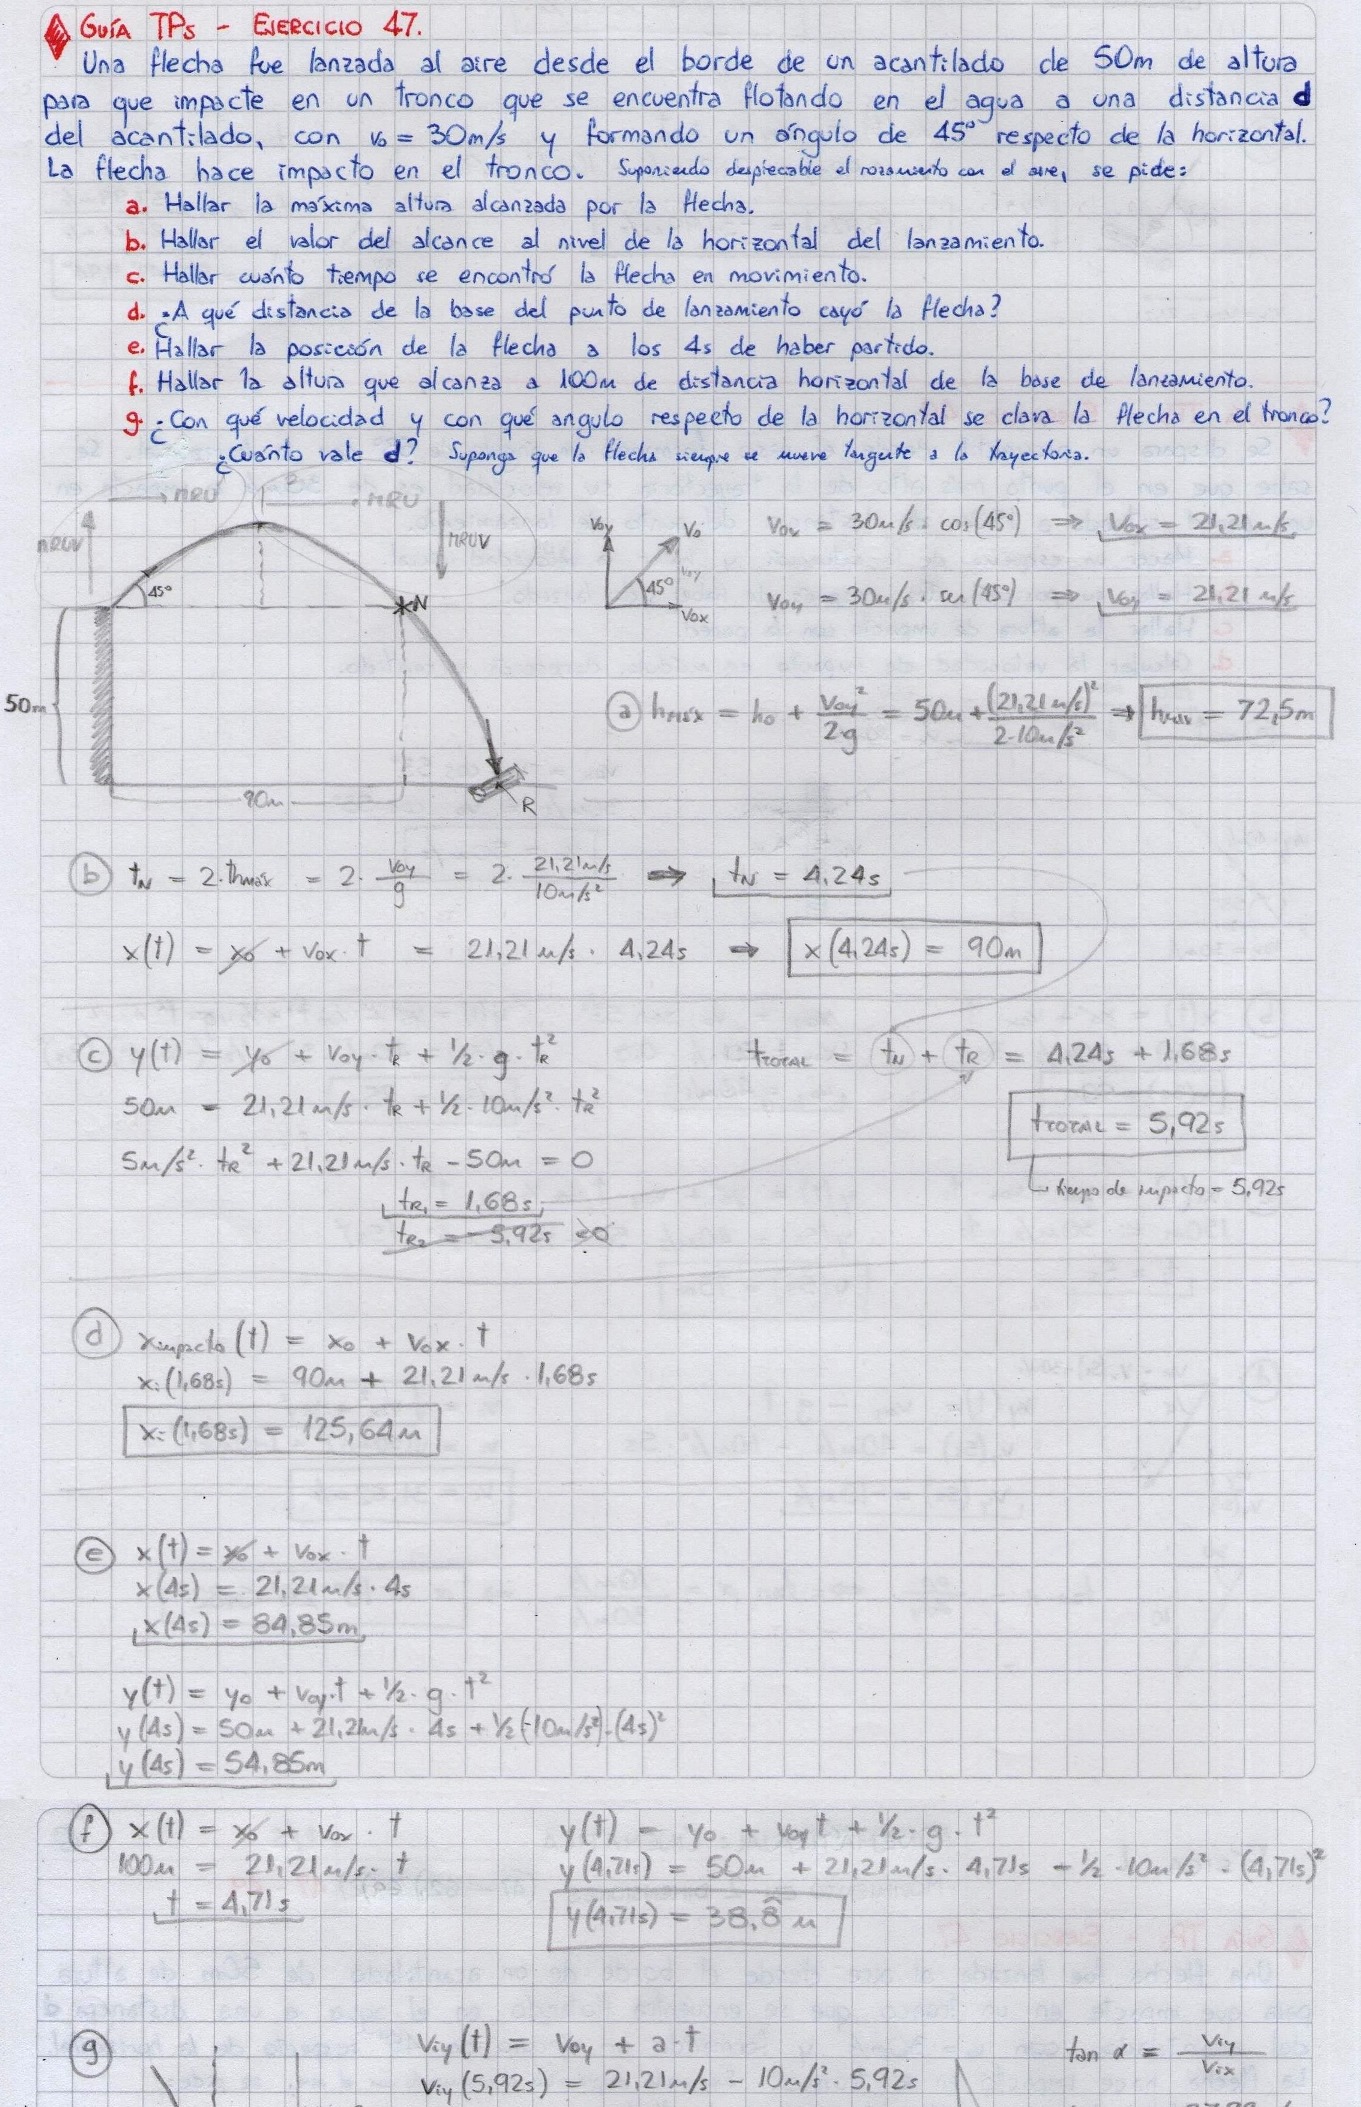 GUÍA TPs - EJERCICIO 47.
Una flecha fue lanzada al aire desde el borde de un acantilado de 50m de altura
para que impacte en un tronco que se encuentra flotando en el agua a una distancia d
del acantilado, con v₀ = 30m/s y formando un ángulo de 45° respecto de la horizontal.
La flecha hace impacto en el tronco. Suponiendo despreciable el rozamiento con el aire, se pide:
a. Hallar la máxima altura alcanzada por la flecha.
b. Hallar el valor del alcance al nivel de la horizontal del lanzamiento.
c. Hallar cuánto tiempo se encontró la flecha en movimiento.
d. ¿A qué distancia de la base del punto de lanzamiento cayó la flecha?
e. Hallar la posición de la flecha a los 4s de haber partido.
f. Hallar la altura que alcanza a 100m de distancia horizontal de la base de lanzamiento.
g. ¿Con qué velocidad y con qué angulo respecto de la horizontal se clava la flecha en el tronco?
¿Cuánto vale d? Suponga que la flecha siempre se mueve tangente a la trayectoria.
MRU MRU
MRUV MRUV
45° N
50m
90m R
Voy Vo Voy 45° Vox
Vox = 30m/s . cos(45°) ⇒ Vox = 21,21 m/s
Voy = 30m/s . sen(45°) ⇒ Voy = 21,21 m/s
a hmáx = h₀ + Voy²/2.g = 50m + (21,21 m/s)²/2.10m/s² ⇒ hmáx = 72,5m
b tN = 2.thmáx = 2. Voy/g = 2. 21,21m/s/10m/s² ⇒ tN = 4,24s
x(t) = x₀ + Vox. t = 21,21 m/s . 4,24s ⇒ x(4,24s) = 90m
c y(t) = y₀ + Voy. tR + 1/2. g. tR²
50m = 21,21m/s. tR + 1/2. 10m/s². tR²
5m/s². tR² + 21,21m/s. tR - 50m = 0
tR₁ = 1,68s
tR₂ = -5,92s <0
tTOTAL = tN + tR = 4,24s + 1,68s
tTOTAL = 5,92s
tiempo de impacto = 5,92s
d ximpacto(t) = x₀ + Vox. t
xi(1,68s) = 90m + 21,21m/s . 1,68s
xi(1,68s) = 125,64m
e x(t) = x₀ + Vox . t
x(4s) = 21,21m/s . 4s
x(4s) = 84,85m
y(t) = y₀ + Voy.t + 1/2. g. t²
y(4s) = 50m + 21,21m/s . 4s + 1/2(-10m/s²).(4s)²
y(4s) = 54,85m
f x(t) = x₀ + Vox . t
100m = 21,21m/s. t
t = 4,71s
y(t) = y₀ + Voy t + 1/2. g. t²
y(4,71s) = 50m + 21,21m/s. 4,71s - 1/2 . 10m/s² . (4,71s)²
y(4,71s) = 38,8 m
g Viy(t) = Voy + a.t
Viy(5,92s) = 21,21m/s - 10m/s². 5,92s
tan α = Viy/Vix